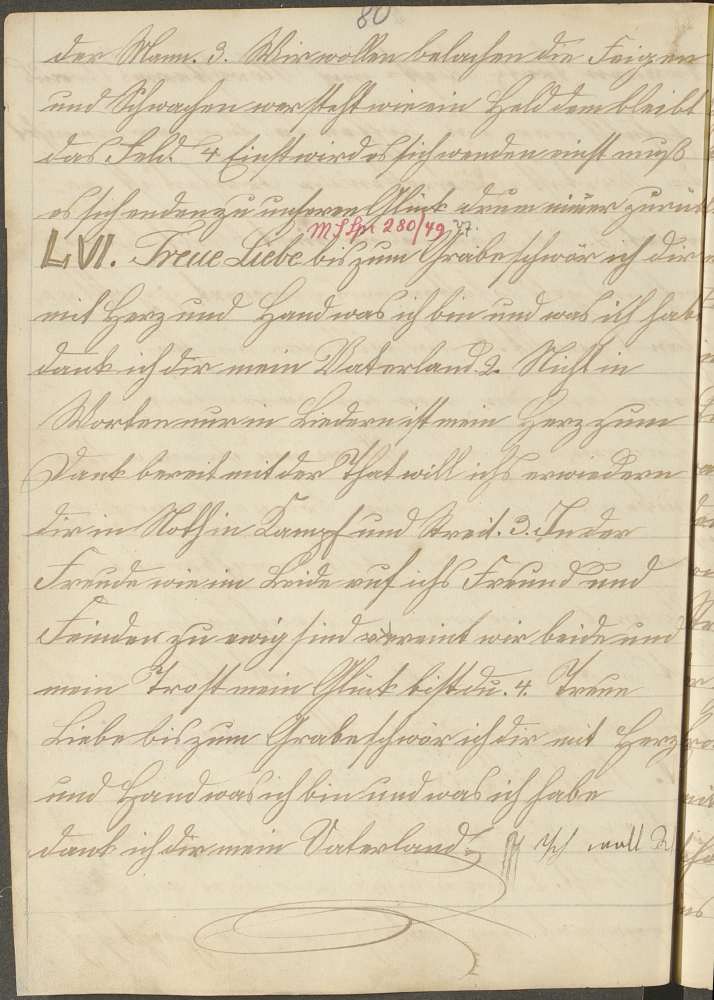 80
der Mann. 3. Wir wollen belachen die Feigen
und Schwachen wer steht wie ein Held dem bleibt
das Feld. 4 Einst wird es sich wenden einst muß
es sich enden zu unseren Glück drum nimer zurück.
M.S.Sp. 280/49 47.
LVI. Treue Liebe bis zum Grabe schwör ich dir
mit Herz und Hand was ich bin und was ich habe
dank ich dir mein Vaterland 2. Nicht in
Worten nur in Liedern ist mein Herz zum
Dank bereit mit der That will ichs erwiedern
dir in Noth in Kampf und Streit. 3. In der
Freude wie im Leide ruf ichs Freund und
Feinden zu ewig sind vereint wir beide und
mein Trost mein Glück bist du. 4. Treue
Liebe bis zum Grabe schwör ich dir mit Herz
und Hand was ich bin und was ich habe
dank ich dir mein Vaterland